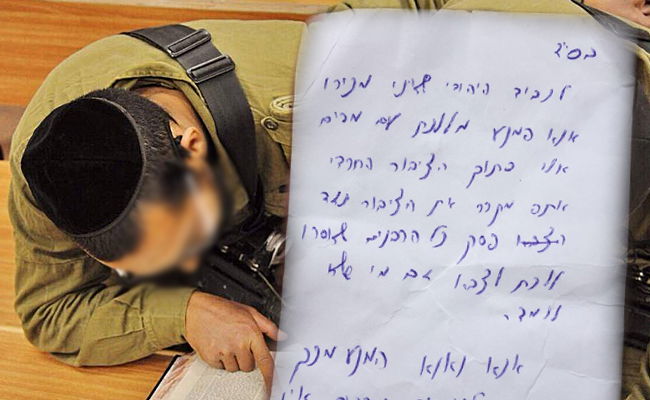 בס"ד
לנכבד היהודי שאיני מכירו
אנא המנע מללכת עם מדים
אלו בתוך הציבור החרדי
אתה מקרר את הציבור נגד
הצבא פסק כל הרבנים שאסרו
ללכת לצבא גם מי שלא
לומד.
אנא ואנא המנע מכך